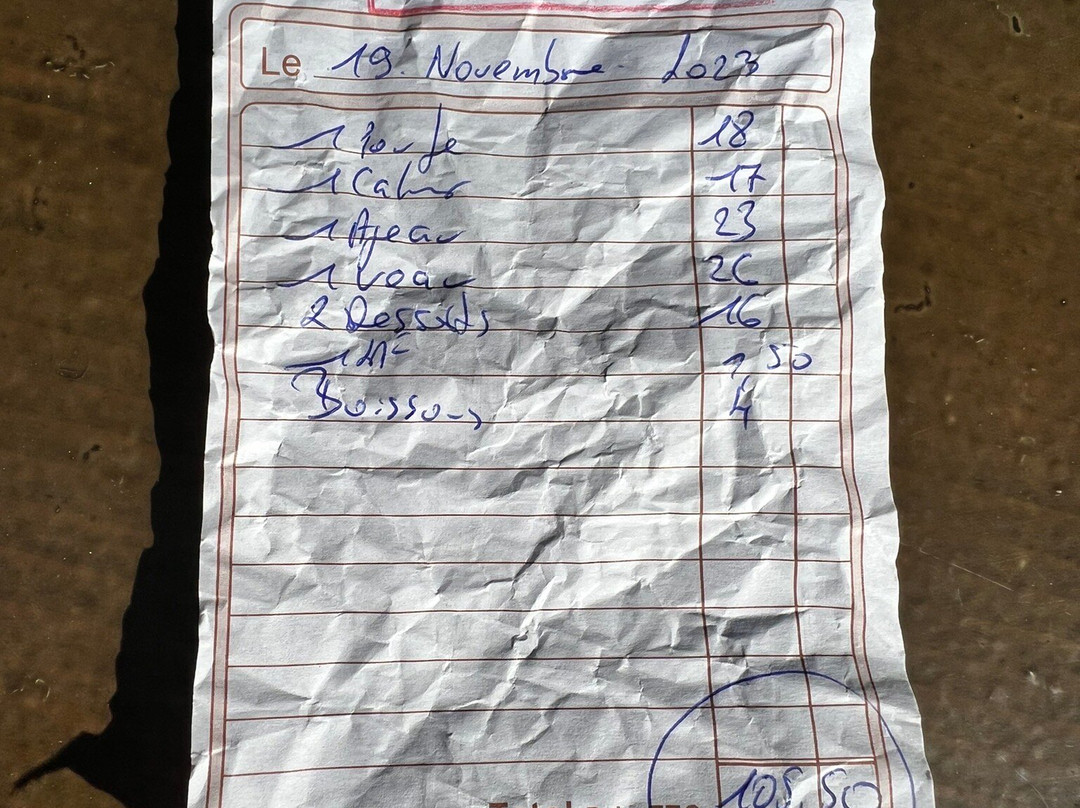 Le 19. Novembre 2023
1 18
1 17
1 Agneau 23
1 Veau 26
2 Desserts 16
1 1 50
Boissons 4
105,50